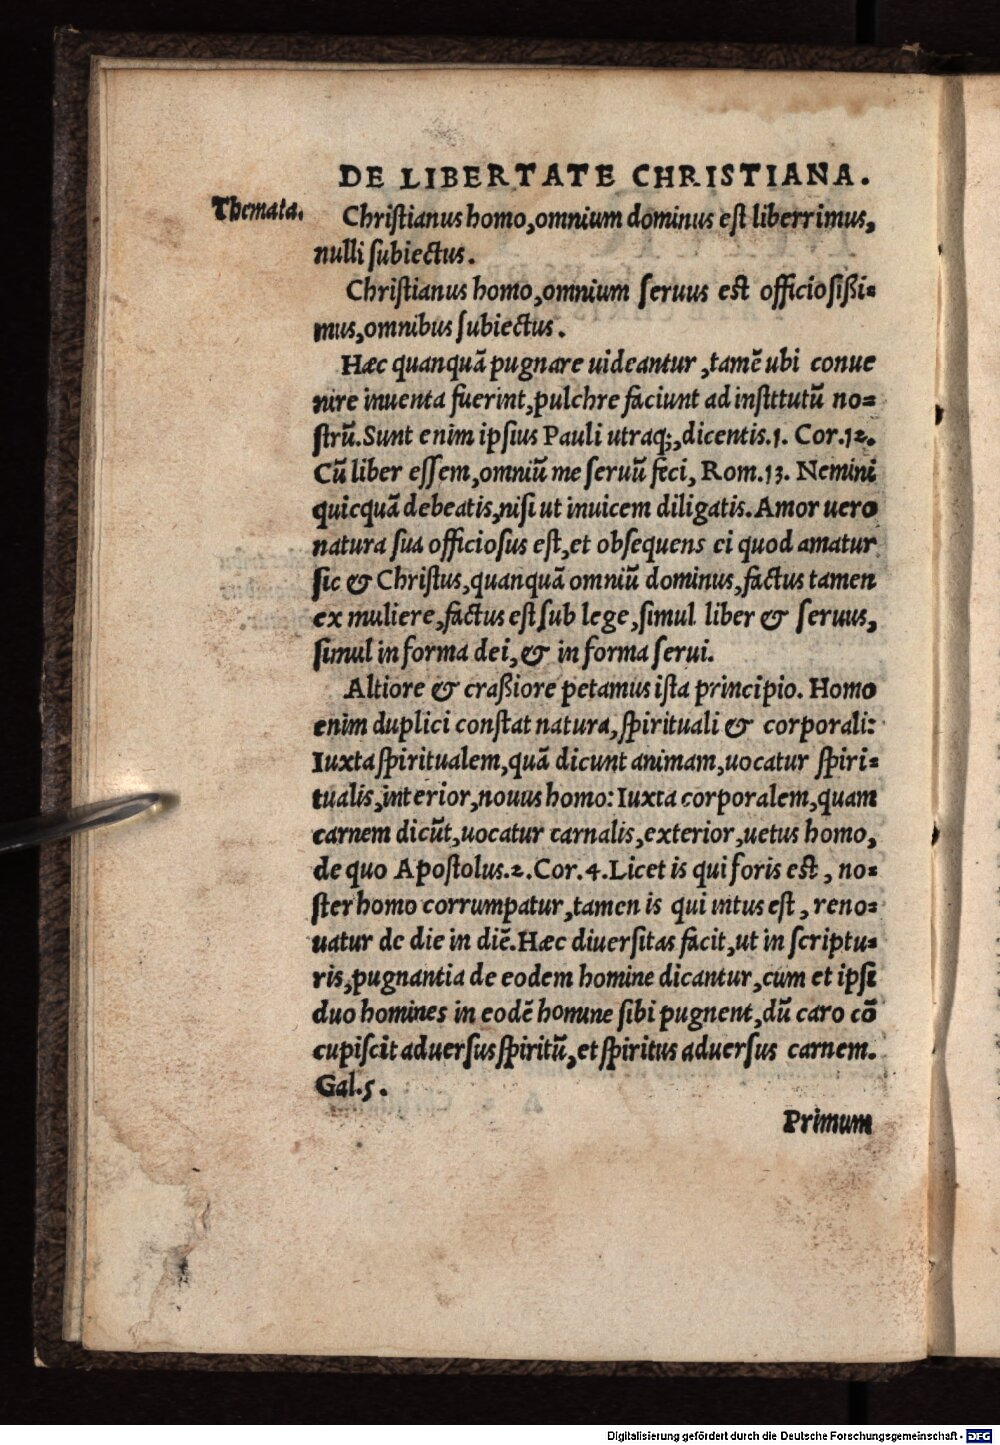 DE LIBERTATE CHRISTIANA.
Themata.
Christianus homo, omnium dominus est liberrimus,
nulli subiectus.
Christianus homo, omnium seruus est officiosißi=
mus, omnibus subiectus.
Hæc quanquã pugnare uideantur, tamẽ ubi conue
nire inuenta fuerint, pulchre faciunt ad institutũ no=
strũ. Sunt enim ipsius Pauli utraq;, dicentis. 1. Cor. 12.
Cũ liber essem, omniũ me seruũ feci, Rom. 13. Nemini
quicquã debeatis, nisi ut inuicem diligatis. Amor uero
natura sua officiosus est, et obsequens ei quod amatur
sic & Christus, quanquã omniũ dominus, factus tamen
ex muliere, factus est sub lege, simul liber & seruus,
simul in forma dei, & in forma serui.
Altiore & craßiore petamus ista principio. Homo
enim duplici constat natura, spirituali & corporali:
Iuxta spiritualem, quã dicunt animam, uocatur spiri=
tualis, interior, nouus homo: Iuxta corporalem, quam
carnem dicũt, uocatur carnalis, exterior, uetus homo,
de quo Apostolus. 2. Cor. 4. Licet is qui foris est, no=
ster homo corrumpatur, tamen is qui intus est, reno=
uatur de die in diẽ. Hæc diuersitas facit, ut in scriptu=
ris, pugnantia de eodem homine dicantur, cum et ipsi
duo homines in eodẽ homine sibi pugnent, dũ caro cõ
cupiscit aduersus spiritũ, et spiritus aduersus carnem.
Gal. 5.
Primum
Digitalisierung gefördert durch die Deutsche Forschungsgemeinschaft - DFG